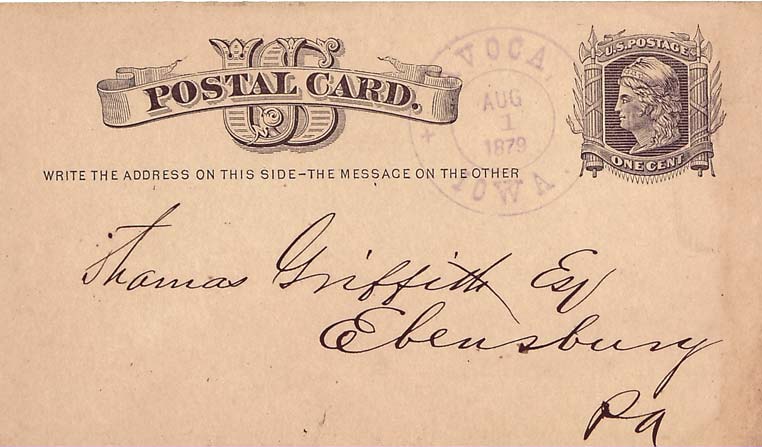 US
POSTAL CARD.
WRITE THE ADDRESS ON THIS SIDE-THE MESSAGE ON THE OTHER
VOCA,
AUG
1
1879
IOWA
U.S. POSTAGE
ONE CENT
Thomas Griffith Esq
Ebensburg
Pa